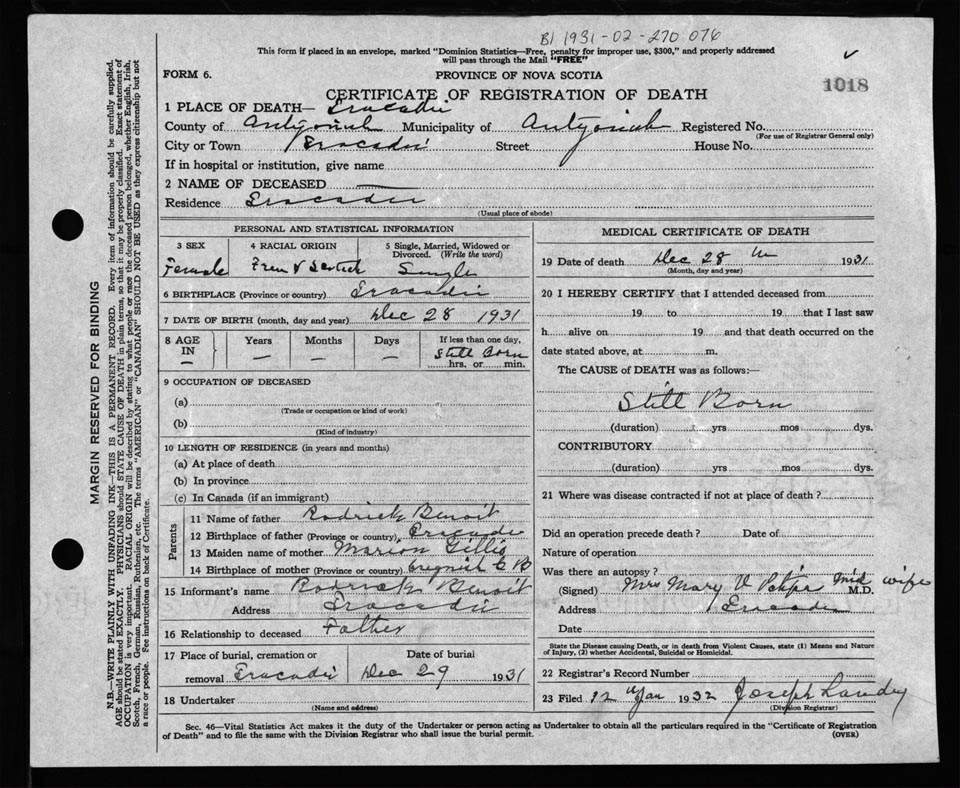 B1 1931-02-270076
This form if placed in an envelope, marked "Dominion Statistics—Free, penalty for improper use, $300," and properly addressed
will pass through the Mail "FREE"
FORM 6. PROVINCE OF NOVA SCOTIA
1018
CERTIFICATE OF REGISTRATION OF DEATH
1 PLACE OF DEATH— Tracadie
County of Antigonish Municipality of Antigonish Registered No.
(For use of Registrar General only)
City or Town Tracadie Street House No.
If in hospital or institution, give name
2 NAME OF DECEASED —
Residence Tracadie
(Usual place of abode)
PERSONAL AND STATISTICAL INFORMATION
3 SEX 4 RACIAL ORIGIN 5 Single, Married, Widowed or
Divorced. (Write the word)
Female Fren & Scotch Single
6 BIRTHPLACE (Province or country) Tracadie
7 DATE OF BIRTH (month, day and year) Dec 28 1931
8 AGE Years Months Days If less than one day,
IN Still Born
— — — — hrs. or min.
9 OCCUPATION OF DECEASED
(a)
(Trade or occupation or kind of work)
(b)
(Kind of industry)
10 LENGTH OF RESIDENCE (in years and months)
(a) At place of death
(b) In province
(c) In Canada (if an immigrant)
Parents
11 Name of father Rodrick Benoit
12 Birthplace of father (Province or country) Tracadie
13 Maiden name of mother Marion Gillis
14 Birthplace of mother (Province or country) Creignish C B
15 Informant's name Rodrick Benoit
Address Tracadie
16 Relationship to deceased Father
17 Place of burial, cremation or Date of burial
removal Tracadie Dec 29 1931
18 Undertaker
(Name and address)
MEDICAL CERTIFICATE OF DEATH
19 Date of death Dec 28 1931
(Month, day and year)
20 I HEREBY CERTIFY that I attended deceased from
19 to 19 that I last saw
h alive on 19 and that death occurred on the
date stated above, at m.
The CAUSE of DEATH was as follows:—
Still Born
(duration) yrs mos dys.
CONTRIBUTORY
(duration) yrs mos dys.
21 Where was disease contracted if not at place of death?
Did an operation precede death? Date of
Nature of operation
Was there an autopsy?
(Signed) Mrs Mary V mid wife
M.D.
Address Tracadie
Date
State the Disease causing Death, or in death from Violent Causes, state (1) Means and Nature
of Injury, (2) whether Accidental, Suicidal or Homicidal.
22 Registrar's Record Number
23 Filed 12 Jan 1932 Joseph Landry
(Division Registrar)
Sec. 46—Vital Statistics Act makes it the duty of the Undertaker or person acting as Undertaker to obtain all the particulars required in the "Certificate of Registration
of Death" and to file the same with the Division Registrar who shall issue the burial permit. (OVER)
MARGIN RESERVED FOR BINDING
N.B.—WRITE PLAINLY WITH UNFADING INK—THIS IS A PERMANENT RECORD. Every item of information should be carefully supplied.
AGE should be stated EXACTLY. PHYSICIANS should STATE CAUSE OF DEATH in plain terms, so that it may be properly classified. Exact statement of
OCCUPATION is very important. RACIAL ORIGIN will be described by stating to what people or race the deceased person belonged, whether English, Irish,
Scotch, French, German, Russian, Ruthenian, etc. The terms "AMERICAN" or "CANADIAN" SHOULD NOT BE USED as they express citizenship but not
a race or people. See instructions on back of Certificate.